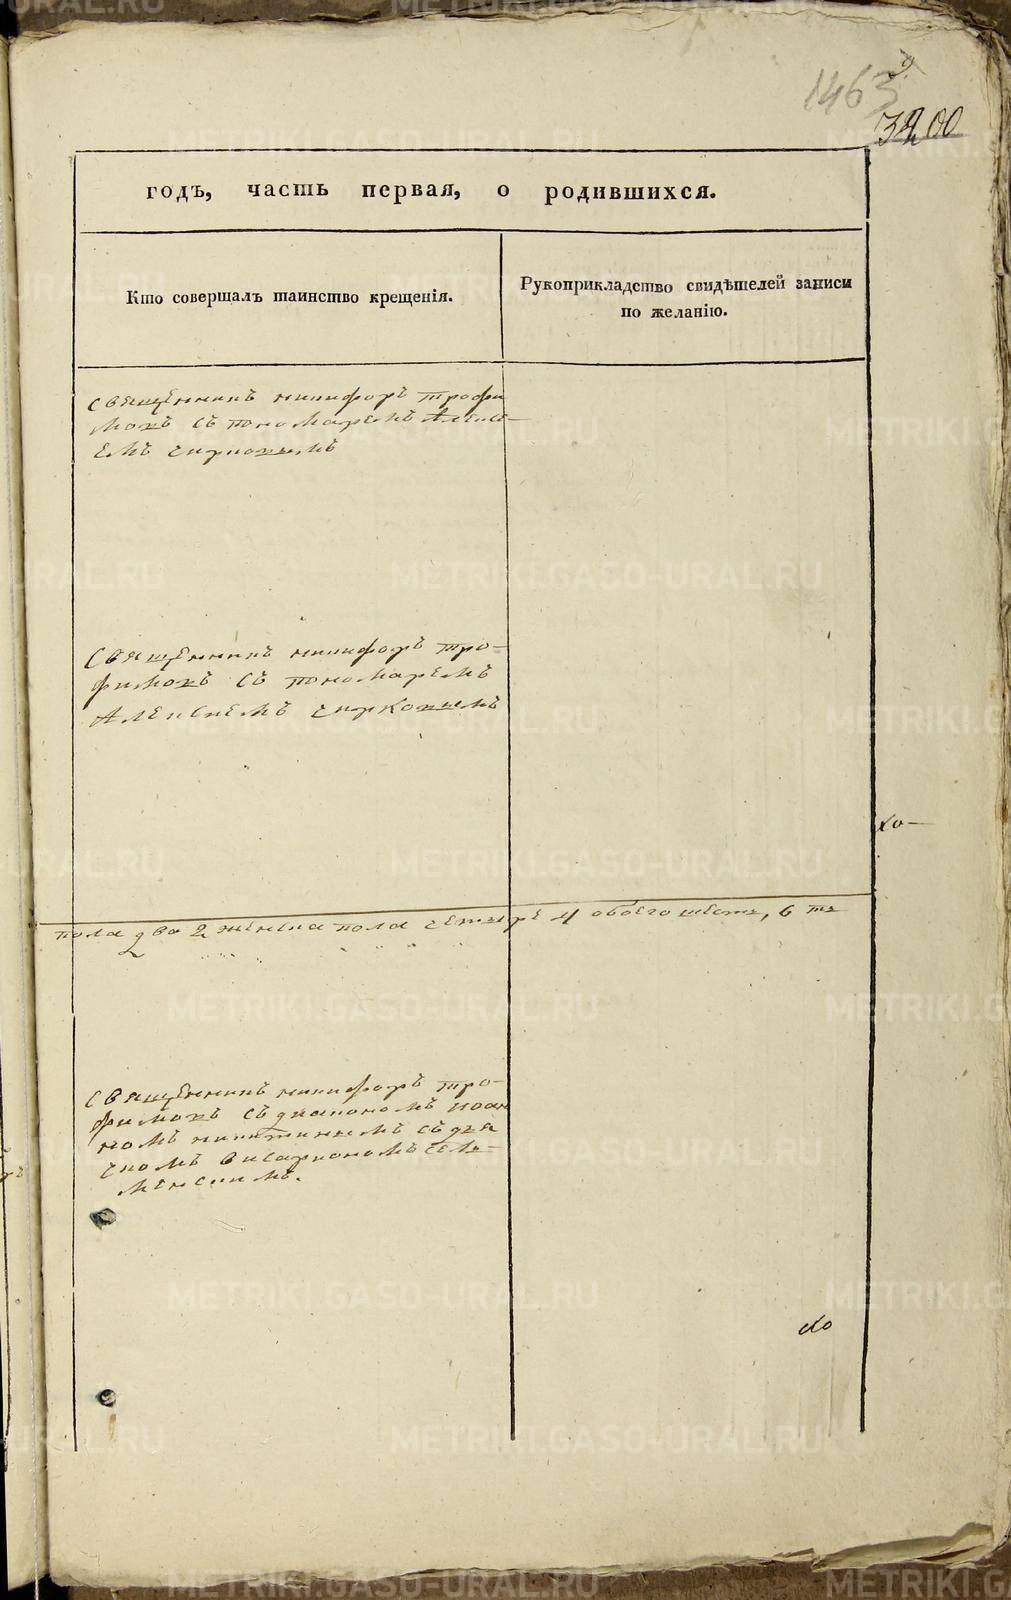 1463
годъ, часть первая, о родившихся.
Кто совершалъ таинство крещенія.
Рукоприкладство свидѣтелей записи
по желанію.
священникъ никифоръ трофи
мовъ съ пономаремъ Алексе-
емъ
священникъ никифоръ тро-
фимовъ съ пономаремъ
Алексѣемъ
пола два 2 женска пола четыре 4 обоего шесть, 6 ть
священникъ никифоръ тро-
фимовъ съ діакономъ иоан
номъ никитинымъ съ дья
чкомъ висариономъ
METRIKI.GASO-URAL.RU